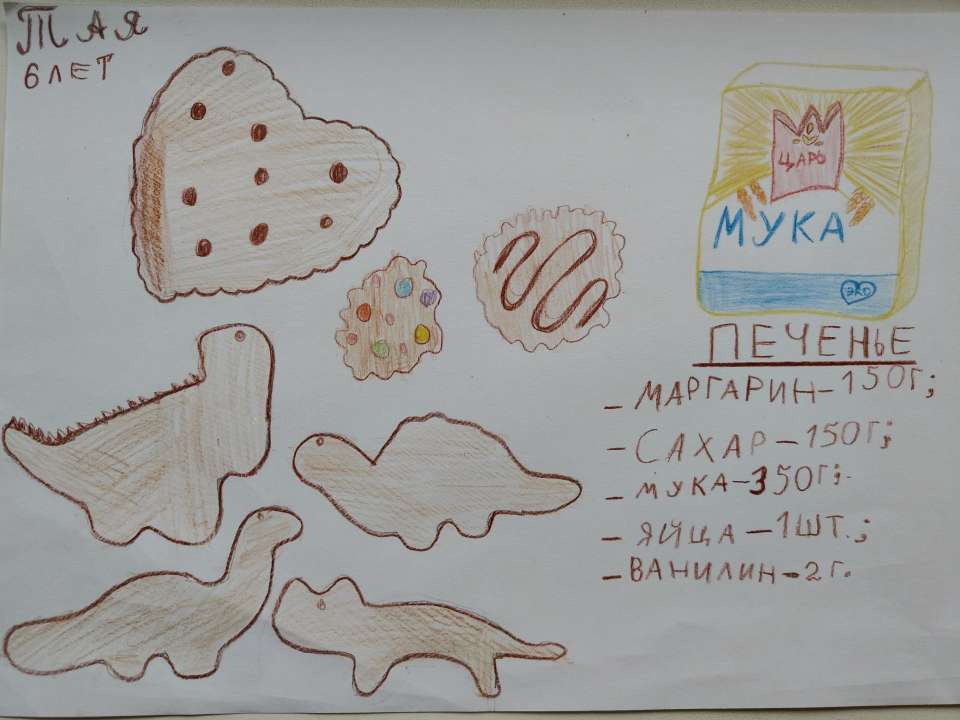 ТАЯ
6 ЛЕТ
ЦАРЬ
МУКА
ЭКО
ПЕЧЕНЬЕ
- МАРГАРИН - 150 Г;
- САХАР - 150 Г;
- МУКА - 350 Г;
- ЯЙЦА - 1 ШТ.;
- ВАНИЛИН - 2 Г.